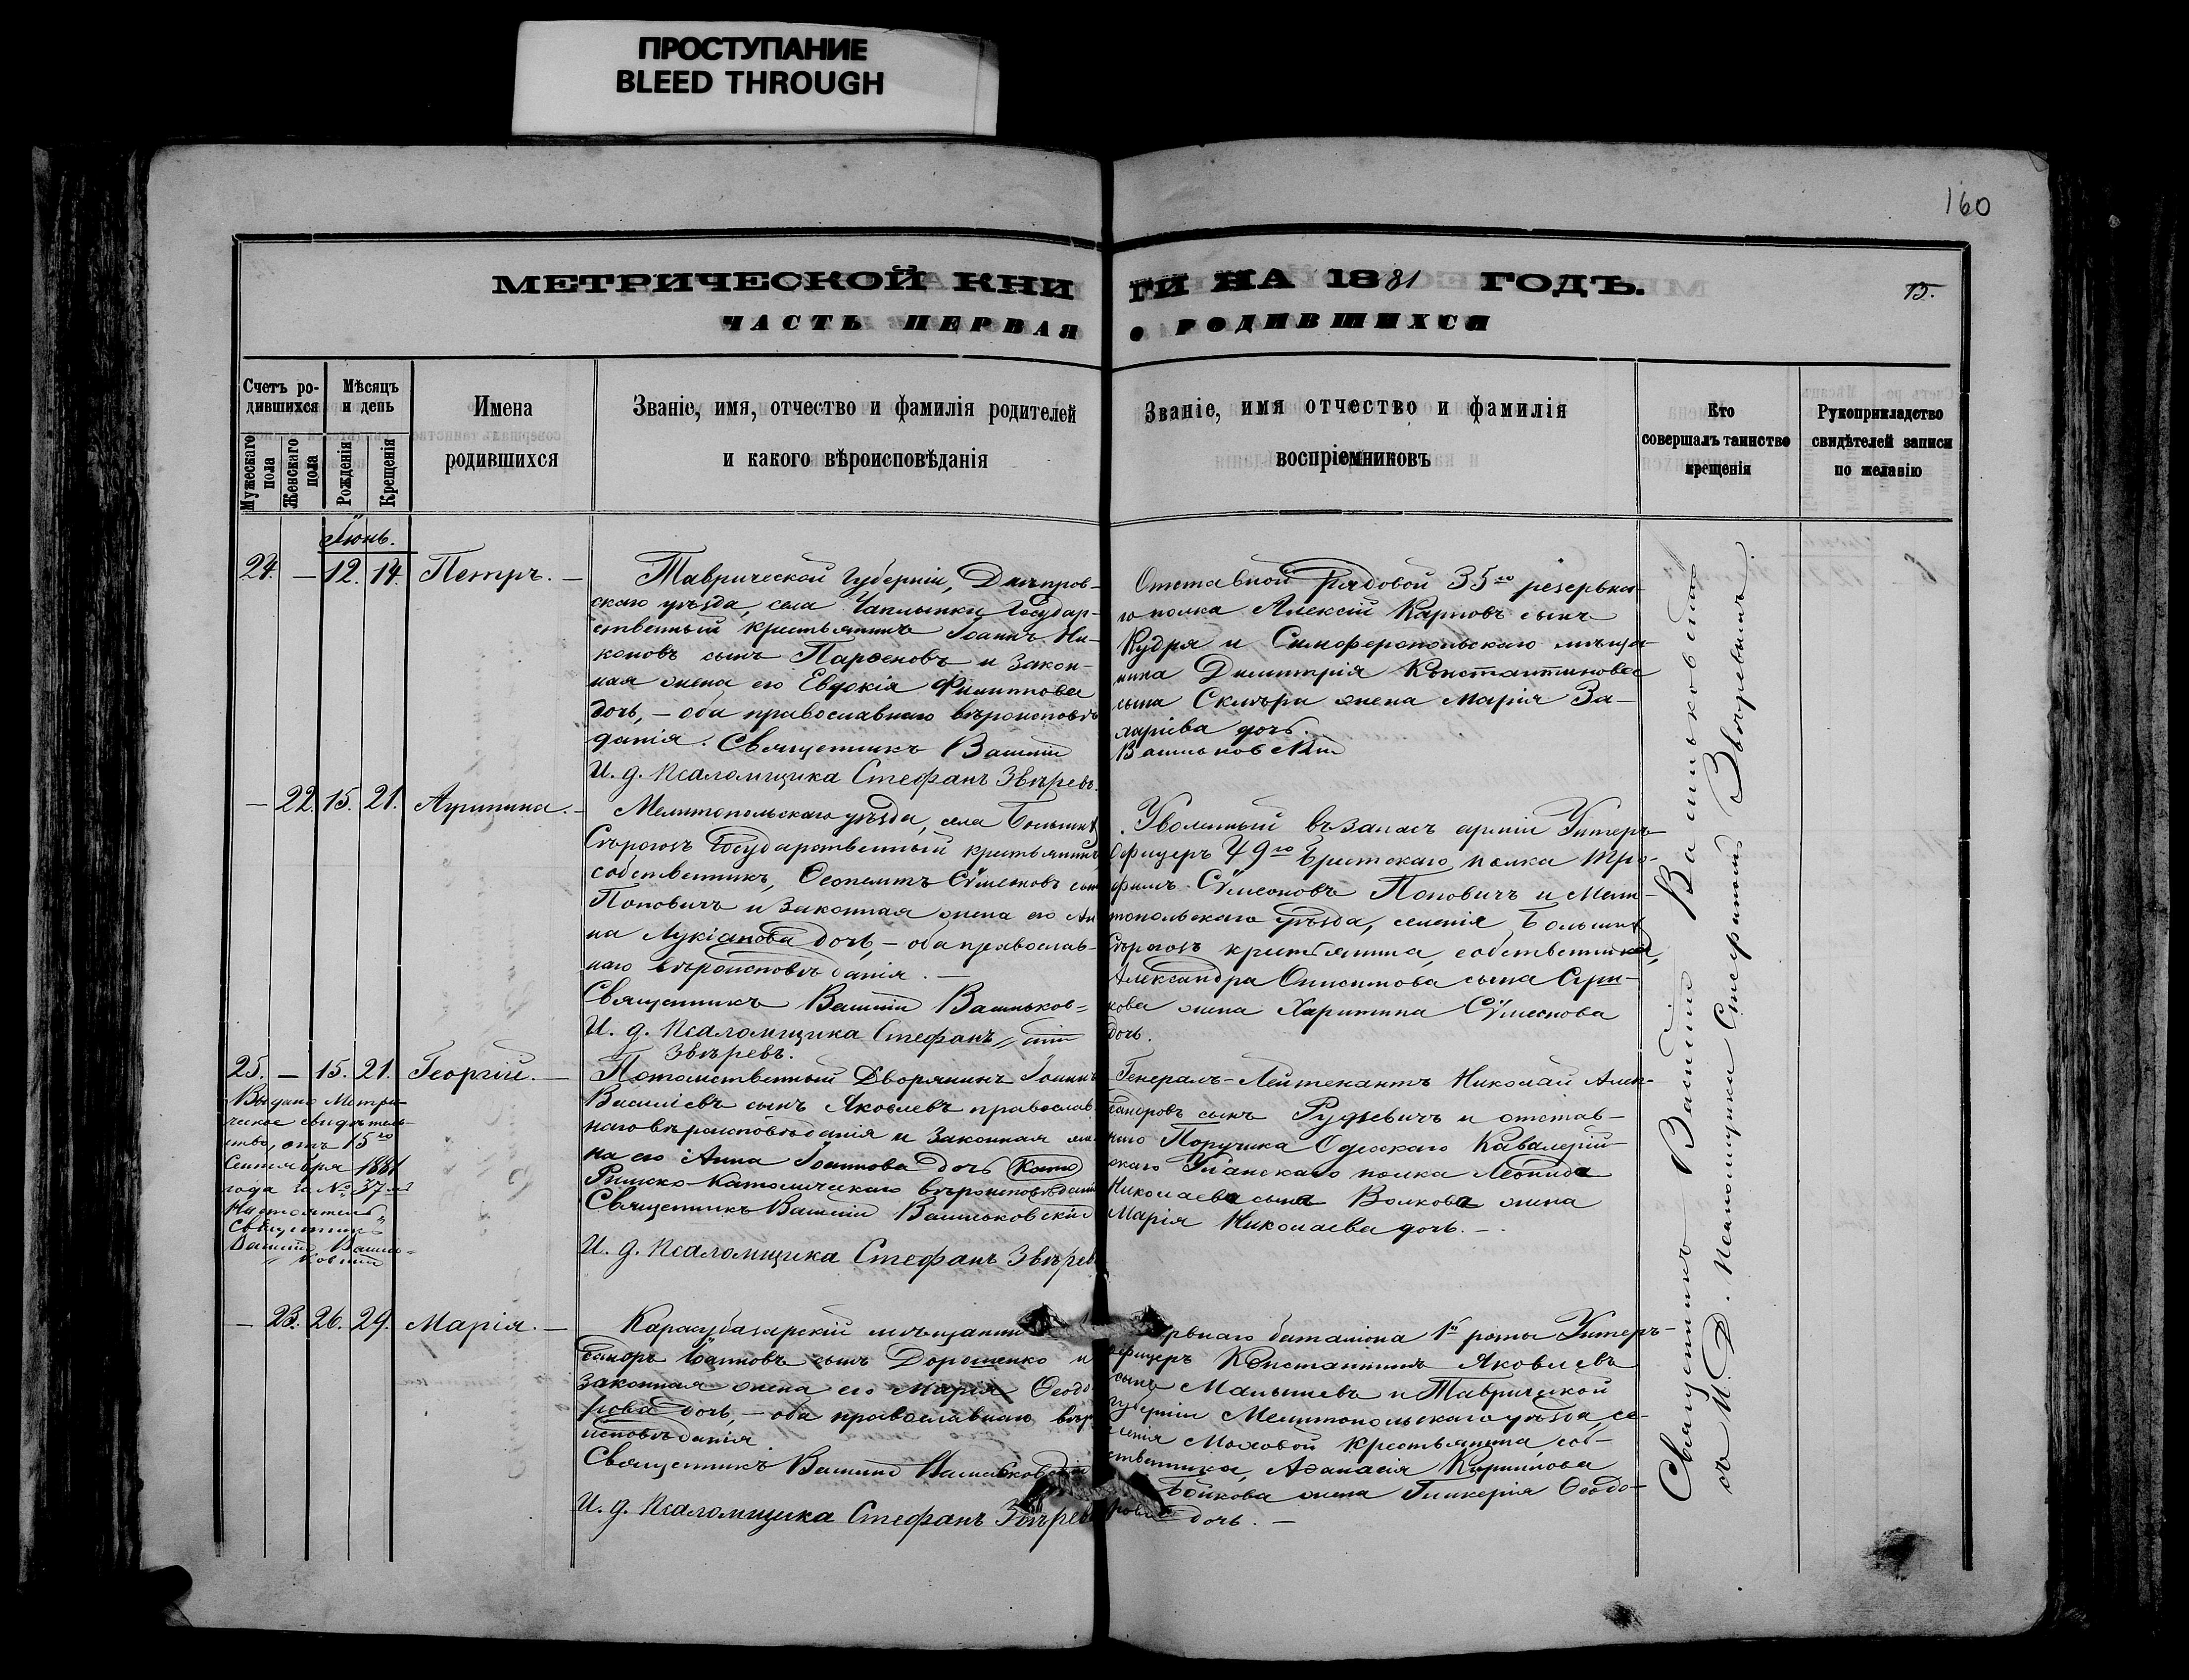 ПРОСТУПАНИЕ
BLEED THROUGH
160
МЕТРИЧЕСКОЙ КНИГИ НА 1881 ГОДЪ.
15.
ЧАСТЬ ПЕРВАЯ О РОДИВШИХСЯ
Счетъ ро-
дившихся
Мужескаго пола
Женскаго пола
Мѣсяцъ
и день
Рожденія
Крещенія
Имена
родившихся
Званіе, имя, отчество и фамилія родителей
и какого вѣроисповѣданія
Званіе, имя отчество и фамилія
воспріемниковъ
Кто
совершалъ таинство
крещенія
Рукоприкладство
свидѣтелей записи
по желанію
Іюнь.
24. — 12. 14. Петръ. —
Таврической Губерніи, Днѣпров-
скаго уѣзда, села Чаплынки Государ-
ственный крестьянинъ Іоаннъ Ни-
коновъ сынъ Парѳеновъ и закон-
ная жена его Евдокія Филиппова
дочь, — оба православнаго вѣроисповѣ-
данія. Священникъ Василій
И. д. Псаломщика Стефанъ Звѣревъ.
Отставной рядовой 35го резервна-
го полка Алексій Карповъ сынъ
Кудря и Симферопольскаго мѣща-
нина Димитрія Константинова
сына жена Марія
дочь.
Васильковскій
— 22. 15. 21. Агрипина. —
Мелитопольскаго уѣзда, села Большихъ
Сѣрогозъ Государственный крестьянинъ
собственникъ, Ѳеопемптъ Сѵмеоновъ сынъ
Поповичъ и законная жена его Ан-
на Лукіанова дочь, — оба православ-
наго вѣроисповѣданія. —
Священникъ Василій Васильков=
И. д. Псаломщика Стефанъ „скій
Звѣревъ.
Уволенный въ запасъ арміи Унтеръ-
Офицеръ 49го Брестскаго полка Тро-
фимъ Сѵмеоновъ Поповичъ и Мели-
топольскаго уѣзда, селенія Большихъ
Сѣрогозъ крестьянина, собственника,
Александра Онисимова сына
жена Харитина Сѵмеонова
дочь.
25. — 15. 21. Георгій. —
Выдано Метри-
ческое свидѣтель-
ство, отъ 15го
Сентября 1881
года за № 37мъ
Настоятель
Священникъ
Василій Василь=
„ковскій
Потомственный Дворянинъ Іоаннъ
Василіевъ сынъ Яковлевъ православ-
наго вѣроисповѣданія и законная же-
на его Анна Іоаннова дочь
Римско-Католическаго вѣроисповѣданія
Священникъ Василій Васильковскій
И. д. Псаломщика Стефанъ Звѣревъ
Генералъ-Лейтенантъ Николай Алек-
сандровъ сынъ Рудзевичъ и отстав-
наго Поручика Одесскаго Кавалерій-
скаго Уланскаго полка Леонида
Николаева сына Волкова жена
Марія Николаева дочь. —
— 23. 26. 29. Марія. —
Карасубазарскій мѣщанинъ
Іоанновъ сынъ Дорошенко и
законная жена его Марія Ѳеодо-
рова дочь, — оба православнаго вѣро-
исповѣданія
Священникъ Василій Васильковскій
И. д. Псаломщика Стефанъ Звѣревъ
баталіона 1й роты Унтеръ-
офицеръ Константинъ Яковлевъ
сынъ Малышевъ и Таврической
Губерніи Мелитопольскаго уѣзда, се-
ленія Моховой крестьянина, соб-
ственника, Аѳанасія Кириллова
Бойкова жена Гликерія Ѳеодо-
рова дочь. —
Священникъ Василій Васильковскій
съ И. Д. Псаломщика Стефаномъ Звѣревымъ.